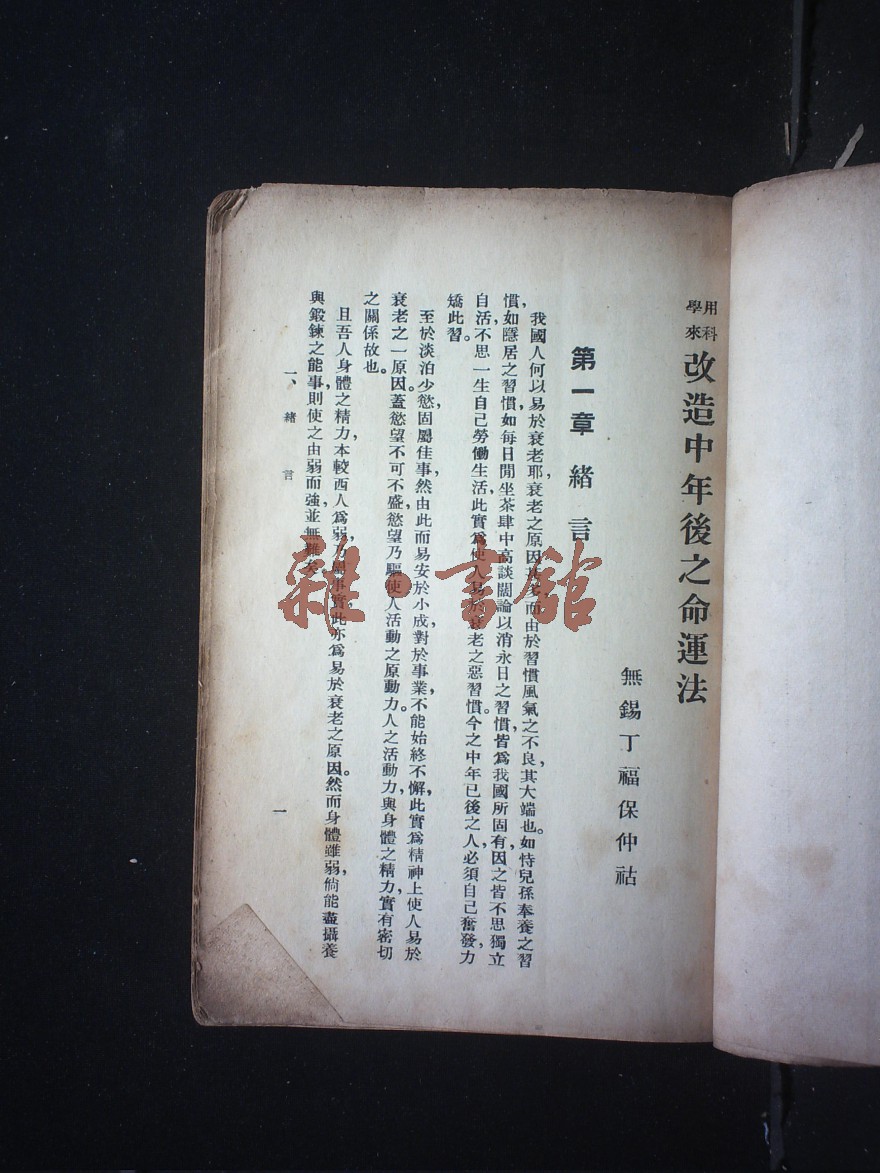 用科
學來
改造中年後之命運法
無錫丁福保仲祜
第一章 緒言
我國人何以易於衰老耶，衰老之原因甚多，而由於習慣風氣之不良，其大端也。如恃兒孫奉養之習
慣，如隱居之習慣，如每日閒坐茶肆中高談闊論以消永日之習慣，皆爲我國所固有，因之皆不思獨立
自活，不思一生自己勞働生活，此實爲使人易於衰老之惡習慣。今之中年已後之人，必須自己奮發，力
矯此習。
至於淡泊少慾，固屬佳事，然由此而易安於小成，對於事業，不能始終不懈，此實爲精神上使人易於
衰老之一原因。蓋慾望不可不盛，慾望乃驅使人活動之原動力。人之活動力，與身體之精力，實有密切
之關係故也。
且吾人身體之精力，本較西人爲弱，乃屬事實，此亦爲易於衰老之原因。然而身體雖弱，倘能盡攝養
與鍛鍊之能事，則使之由弱而強，並無難矣。
一、緒言
一
雜·書館